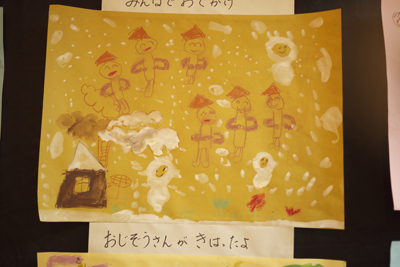 みんなで おでかけ
おじぞうさんが きはったよ